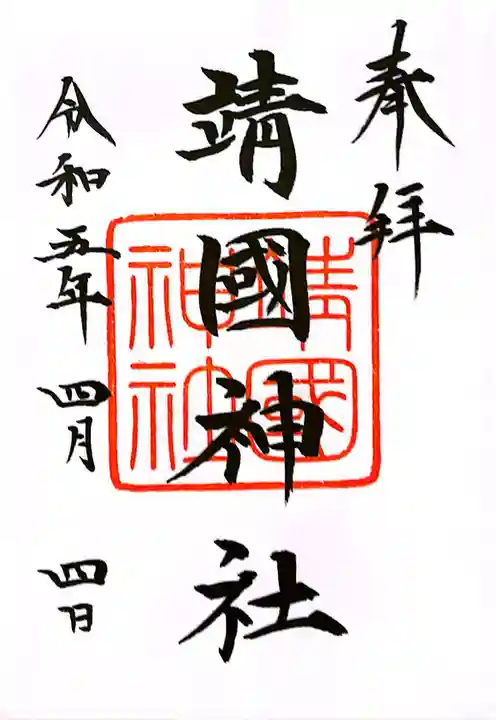 奉拝
靖國神社
靖國神社
令和五年四月四日